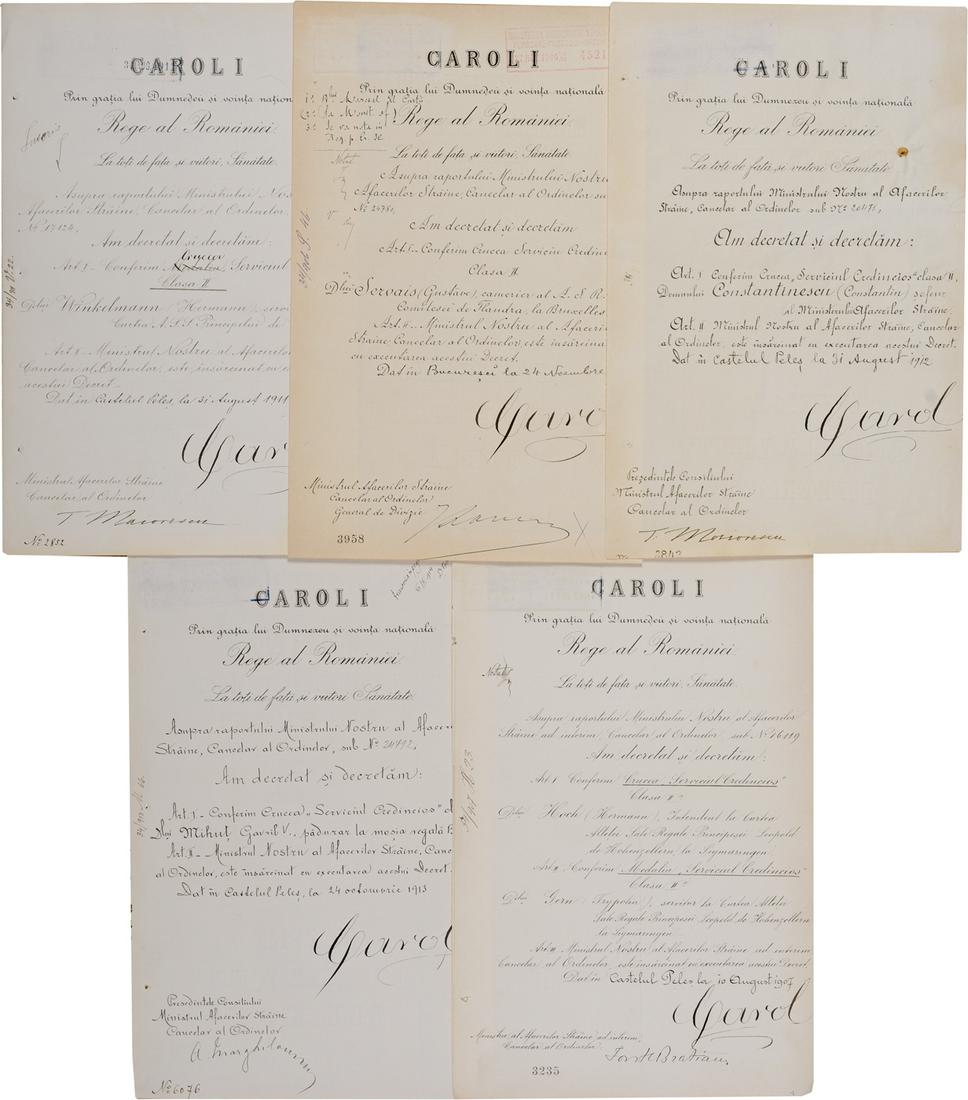 CAROL I
Prin grația lui Dumnedeu și voința națion
Rege al României
La toți de față și viitori, Sănătate
Asupra raportului Ministrului Nos
Afacerilor Străine, Cancelar al Ordinelor
No 17124,
Am decretat și decretăm:
Crucea
Art. I Conferim Serviciul
Clasa II
Dlui Winkelmann (Hermann), serv
Curtea A.S.S. Principelui de
Art. II Ministrul Nostru al Afaceril
Cancelar al Ordinelor, este însărcinat cu e
acestui Decret.
Dat în Castelul Peleș, la 31 August 1911
Carol
Ministrul Afacerilor Străine
Cancelar al Ordinelor
T. Maiorescu
No 2852
CAROL I
4521
Prin grația lui Dumnedeu și voința națională
Rege al României
La toți de față și viitori, Sănătate
Asupra raportului Ministrului Nostru
Afacerilor Străine, Cancelar al Ordinelor su
No 24780,
Am decretat și decretăm
Art. I Conferim Crucea Serviciu Credinc
Clasa II
Dlui Servais (Gustave), camerier al A. S. R.
Comtesei de Flandra, la Bruxelles
Art. II Ministrul Nostru al Afaceri
Străine Cancelar al Ordinelor, este însărcina
cu executarea acestui Decret.
Dat în București la 24 Noembre
Carol
Ministrul Afacerilor Străine
Cancelar al Ordinelor
General de Divizie
3958
CAROL I
Prin grația lui Dumnezeu și voința națională
Rege al României
La toți de față și viitori Sănătate
Asupra raportului Ministrului Nostru al Afacerilor
Străine, Cancelar al Ordinelor sub No 20471,
Am decretat și decretăm:
Art. I Conferim Crucea „Serviciul Credincios" clasa II,
Domnului Constantinescu (Constantin) șofeur
al Ministerului Afacerilor Străine,
Art. II Ministrul Nostru al Afacerilor Străine, Cancelar
al Ordinelor, este însărcinat cu executarea acestui Decret.
Dat în Castelul Peleș la 31 August 1912
Carol
Președintele Consiliului
Ministrul Afacerilor Străine
Cancelar al Ordinelor
T. Maiorescu
CAROL I
Prin grația lui Dumnezeu și voința națională
Rege al României
La toți de față și viitori Sănătate
Asupra raportului Ministrului Nostru al Afacer
Străine, Cancelar al Ordinelor, sub No 24492,
Am decretat și decretăm:
Art. I Conferim Crucea „Serviciul Credincios" cl
Dlui Mihuț Gavril V., pădurar la moșia regală B
Art. II Ministrul Nostru al Afacerilor Străine, Canc
al Ordinelor, este însărcinat cu executarea acestui Decret.
Dat în Castelul Peleș, la 24 octomvrie 1913
Carol
Președintele Consiliului
Ministrul Afacerilor Străine
Cancelar al Ordinelor
No 6076
CAROL I
Prin grația lui Dumnedeu și voința națională
Rege al României
La toți de față și viitori, Sănătate
Asupra raportului Ministrului Nostru al Afacerilor
Străine ad interim, Cancelar al Ordinelor sub No 16119
Am decretat și decretăm:
Art. I Conferim Crucea „Serviciul Credincios"
Clasa IIa
Dlui Hoch (Hermann), Intendent la Curtea
Altelei Sale Regale Principesei Leopold
de Hohenzollern, la Sigmaringen.
Art. II Conferim Medalia „Serviciul Credincios"
Clasa IIa
Dlui Gern (Trypolin), servitor la Curtea Altelei
Sale Regale Principesei Leopold de Hohenzollern
la Sigmaringen.
Art. III Ministrul Nostru al Afacerilor Străine ad interim
Cancelar al Ordinelor, este însărcinat cu executarea acestui Decret.
Dat în Castelul Peleș, la 10 August 1907
Carol
Ministru al Afacerilor Străine ad interim,
Cancelar al Ordinelor
3235